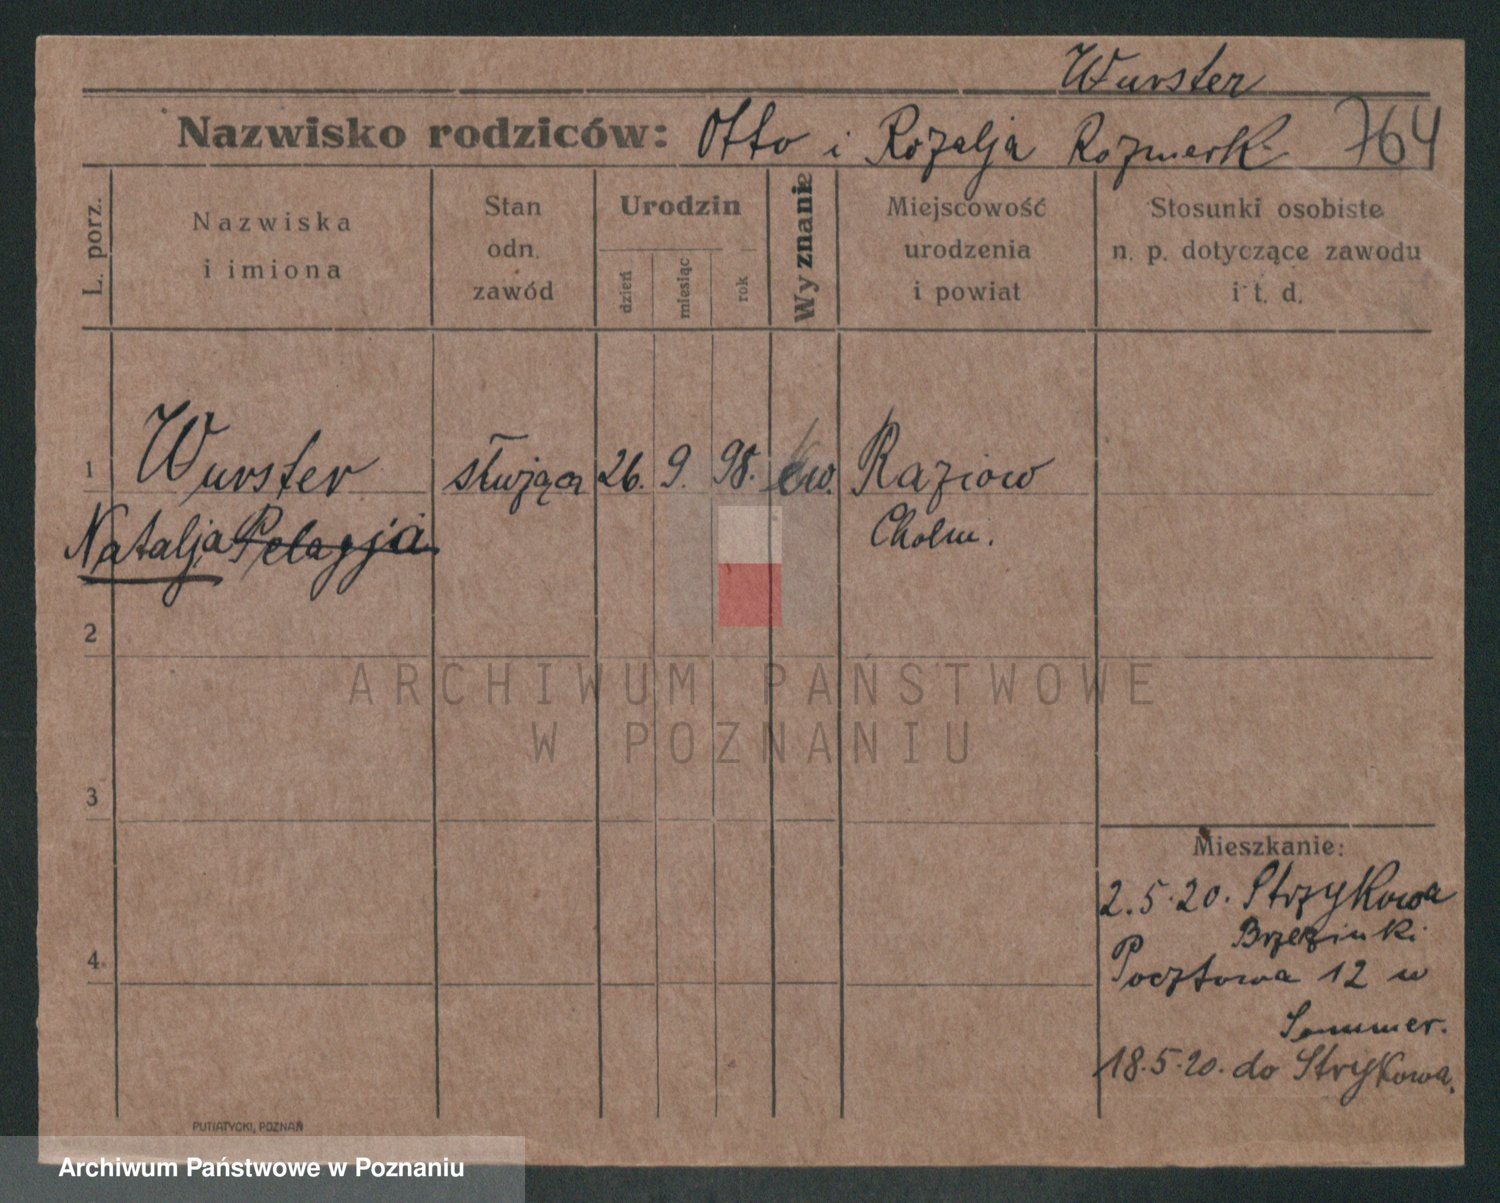 Wurster
Nazwisko rodziców: Otto i Rozalja Rozmark 764
L. porz.
Nazwiska
i imiona
Stan
odn.
zawód
Urodzin
dzień
miesiąc
rok
Wyznanie
Miejscowość
urodzenia
i powiat
Stosunki osobiste
n. p. dotyczące zawodu
i t. d.
1 Wurster służąca 26. 9. 98. ew. Raziow
Natalja Pelagja Cholm.
2
3
4
Mieszkanie:
2.5.20. Strzykowa
Brzezinki
Pocztowa 12 u
Sommer.
18.5.20. do Strykowa.
PUTIATYCKI, POZNAŃ
ARCHIWUM PAŃSTWOWE
W POZNANIU
Archiwum Państwowe w Poznaniu